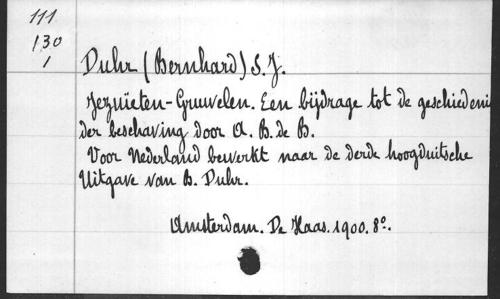 111
130
1
Duhr (Bernhard) S. J.
Jezuïeten-Gruwelen. Een bijdrage tot de geschiedenis
der beschaving door A. B. de B.
Voor Nederland bewerkt naar de derde hoogduitsche
Uitgave van B. Duhr.
Amsterdam. De Haas. 1900. 8º.